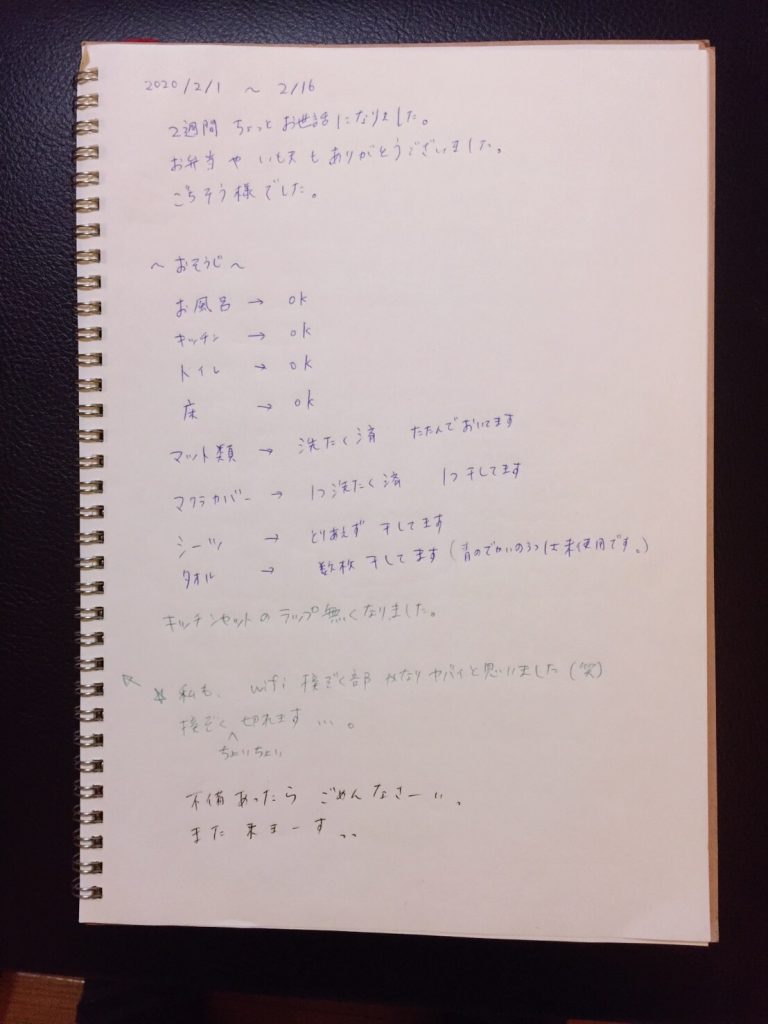 2020/2/1 ～ 2/16
2週間 ちょっと お世話になりました。
お弁当 や いもスも ありがとうございました。
ごちそう様でした。
～ おそうじ ～
お風呂 → ok
キッチン → ok
トイレ → ok
床 → ok
マット類 → 洗たく済 たたんでおいてます
マクラカバー → 1つ洗たく済 1つ干してます
シーツ → とりあえず 干してます
タオル → 数枚 干してます (青のでかいの3つは未使用です。)
キッチンセットの ラップ無くなりました。
☆ 私も、wifi 接ぞく部 かなりヤバイと思いました (笑)
接ぞく 切れます …。
ちょいちょい
不備あったら ごめんなさーい。
また 来まーす、、